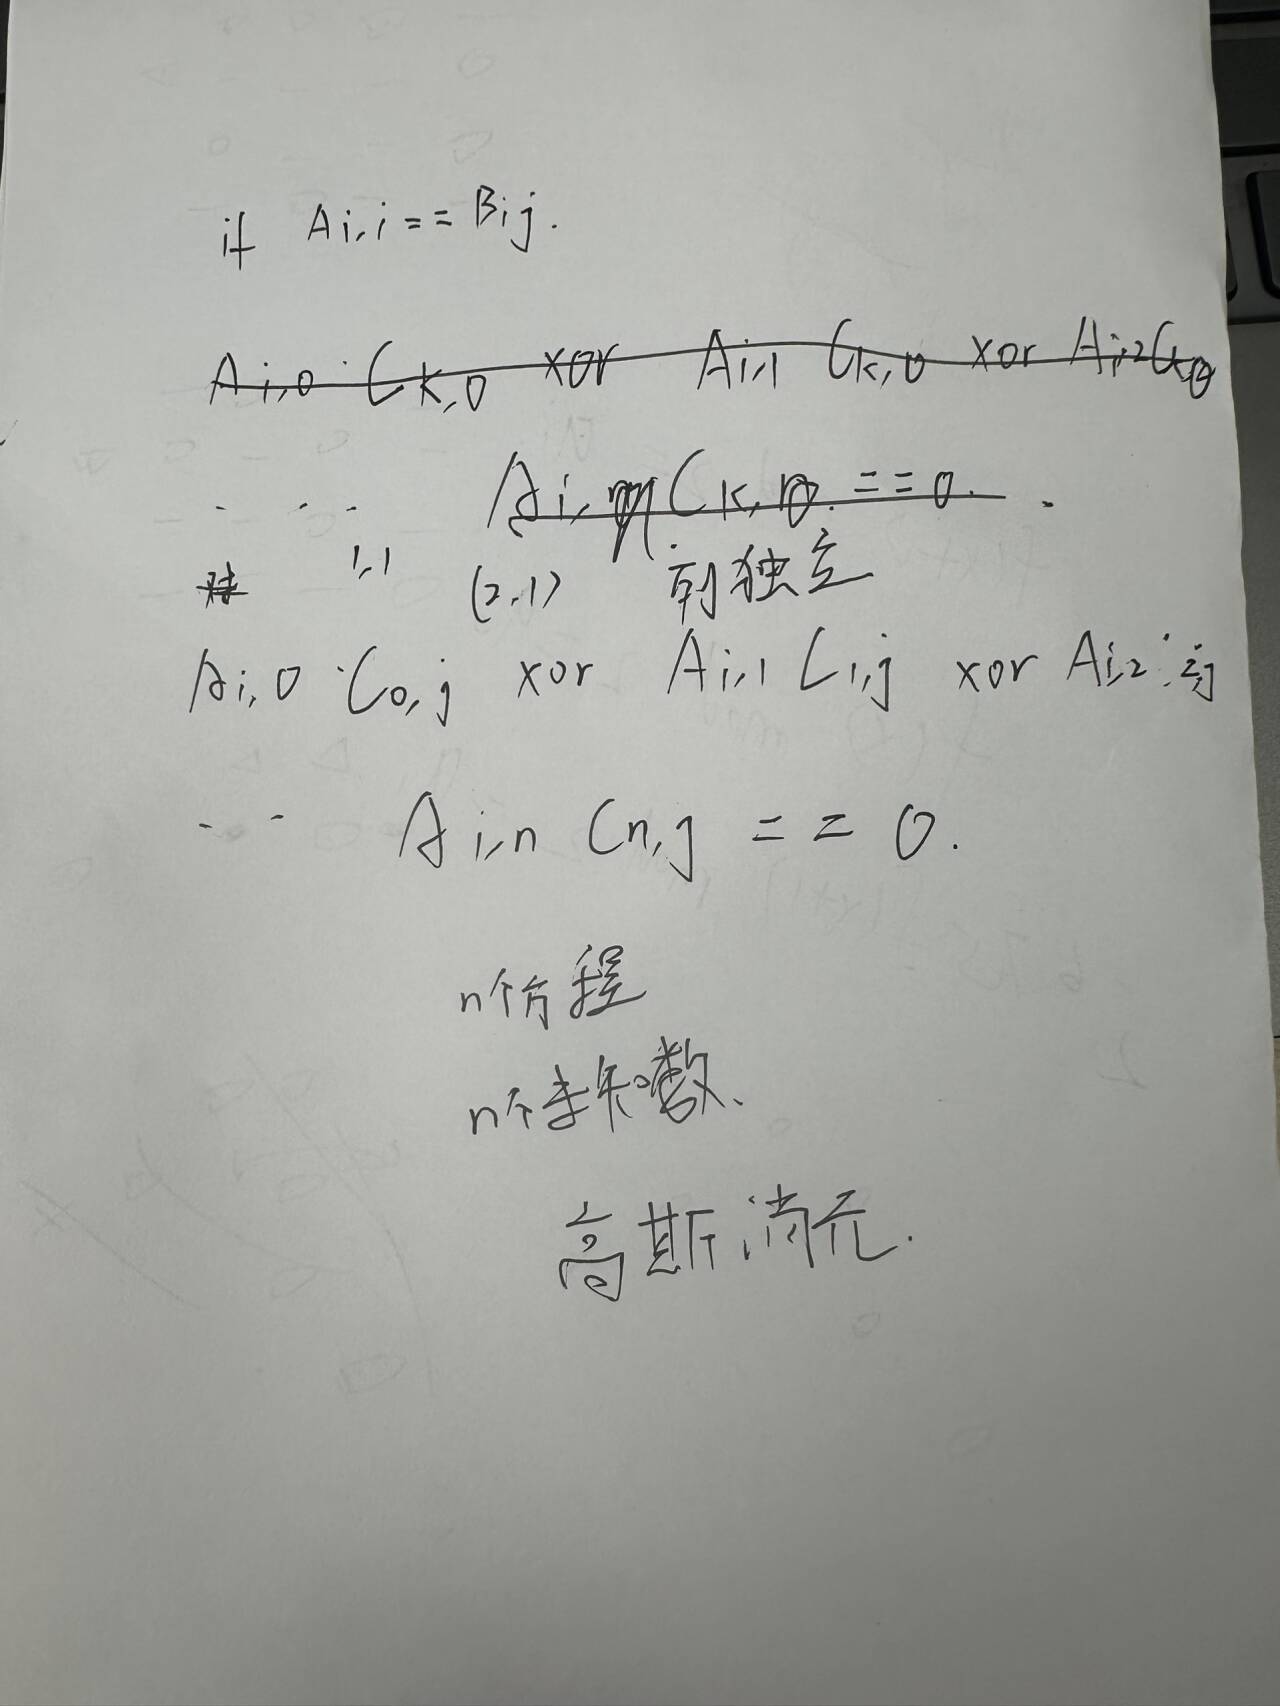 if Ai,i == Bij.
Ai,0 Ck,0 xor Ai,1 Ck,0 xor Ai,2
... Ai, Ck, == 0.
1,1 (2,1) 列独立
Ai,0 · C0,j xor Ai,1 C1,j xor Ai,2 2,j
.. Ai,n Cn,j == 0.
n个方程
n个未知数.
高斯消元.